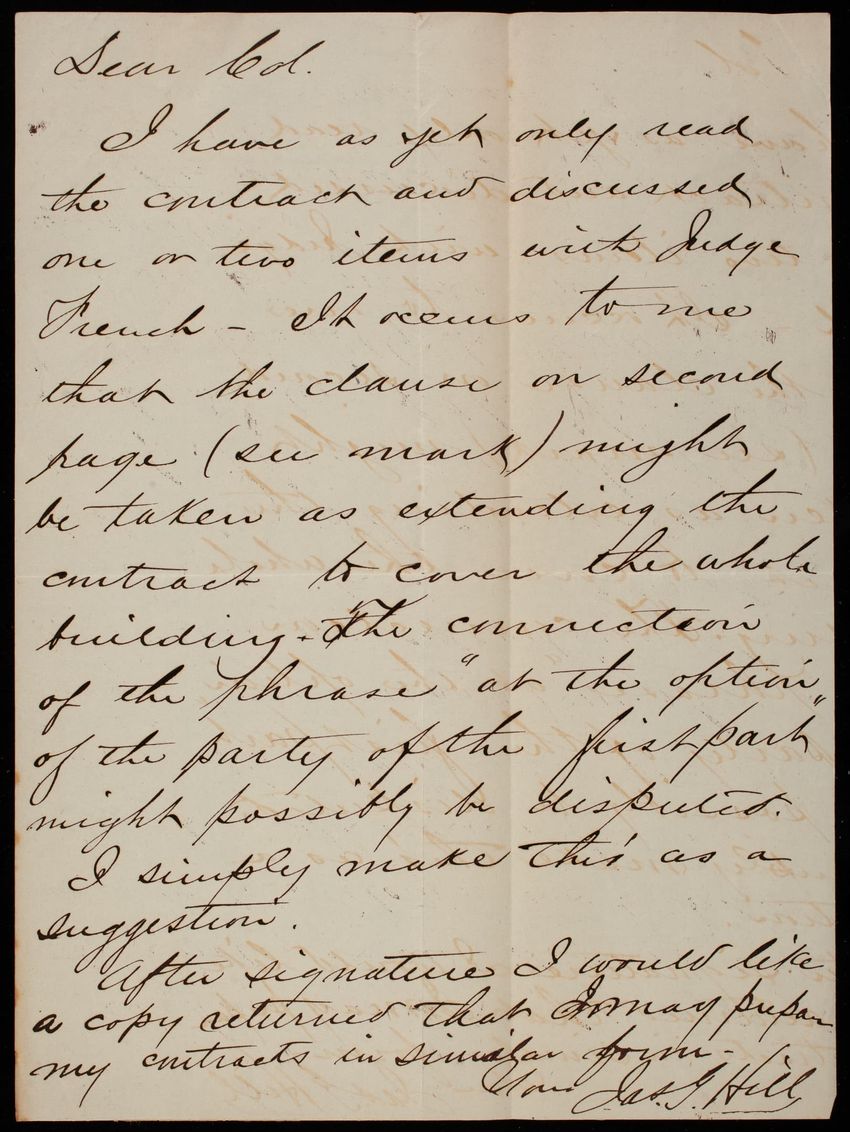 Dear Col.
I have as yet only read
the contract and discussed
one or two items with Judge
French – It occurs to me
that the clause on second
page (see mark) might
be taken as extending the
contract to cover the whole
building. The connection
of the phrase "at the option
of the party of the first part"
might possibly be disputed.
I simply make this as a
suggestion.
After signature I would like
a copy returned that I may prepare
my contracts in similar form –
Yours Jas. G. Hill